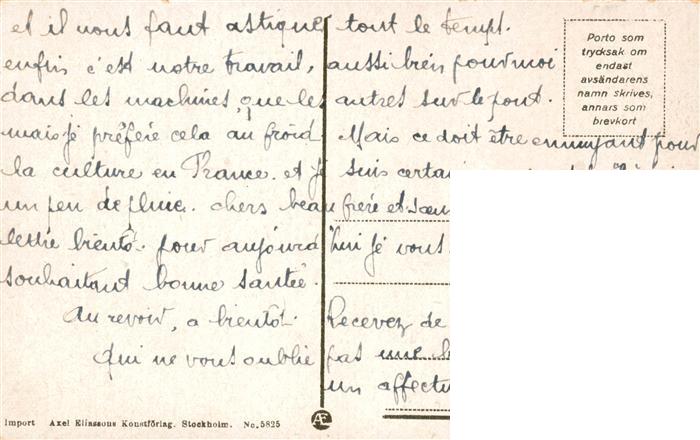 et il nous faut astiquer tout le temps.
enfin c'est notre travail, aussi bien pour moi
dans les machines, que les autres sur le pont.
mais je préfère cela au froid. Mais ce doit être ennuyant pour
la culture en France. et je suis certain
un peu de pluie. chers beau frère et soeur
lettre bientôt. pour aujourd'hui je vous
souhaitant bonne santée.
Au revoir, a bientôt. Recevez de
qui ne vous oublie pas une
un affectu
Porto som
trycksak om
endast
avsändarens
namn skrives,
annars som
brevkort
Import Axel Eliassons Konstförlag. Stockholm. No. 5825
AE